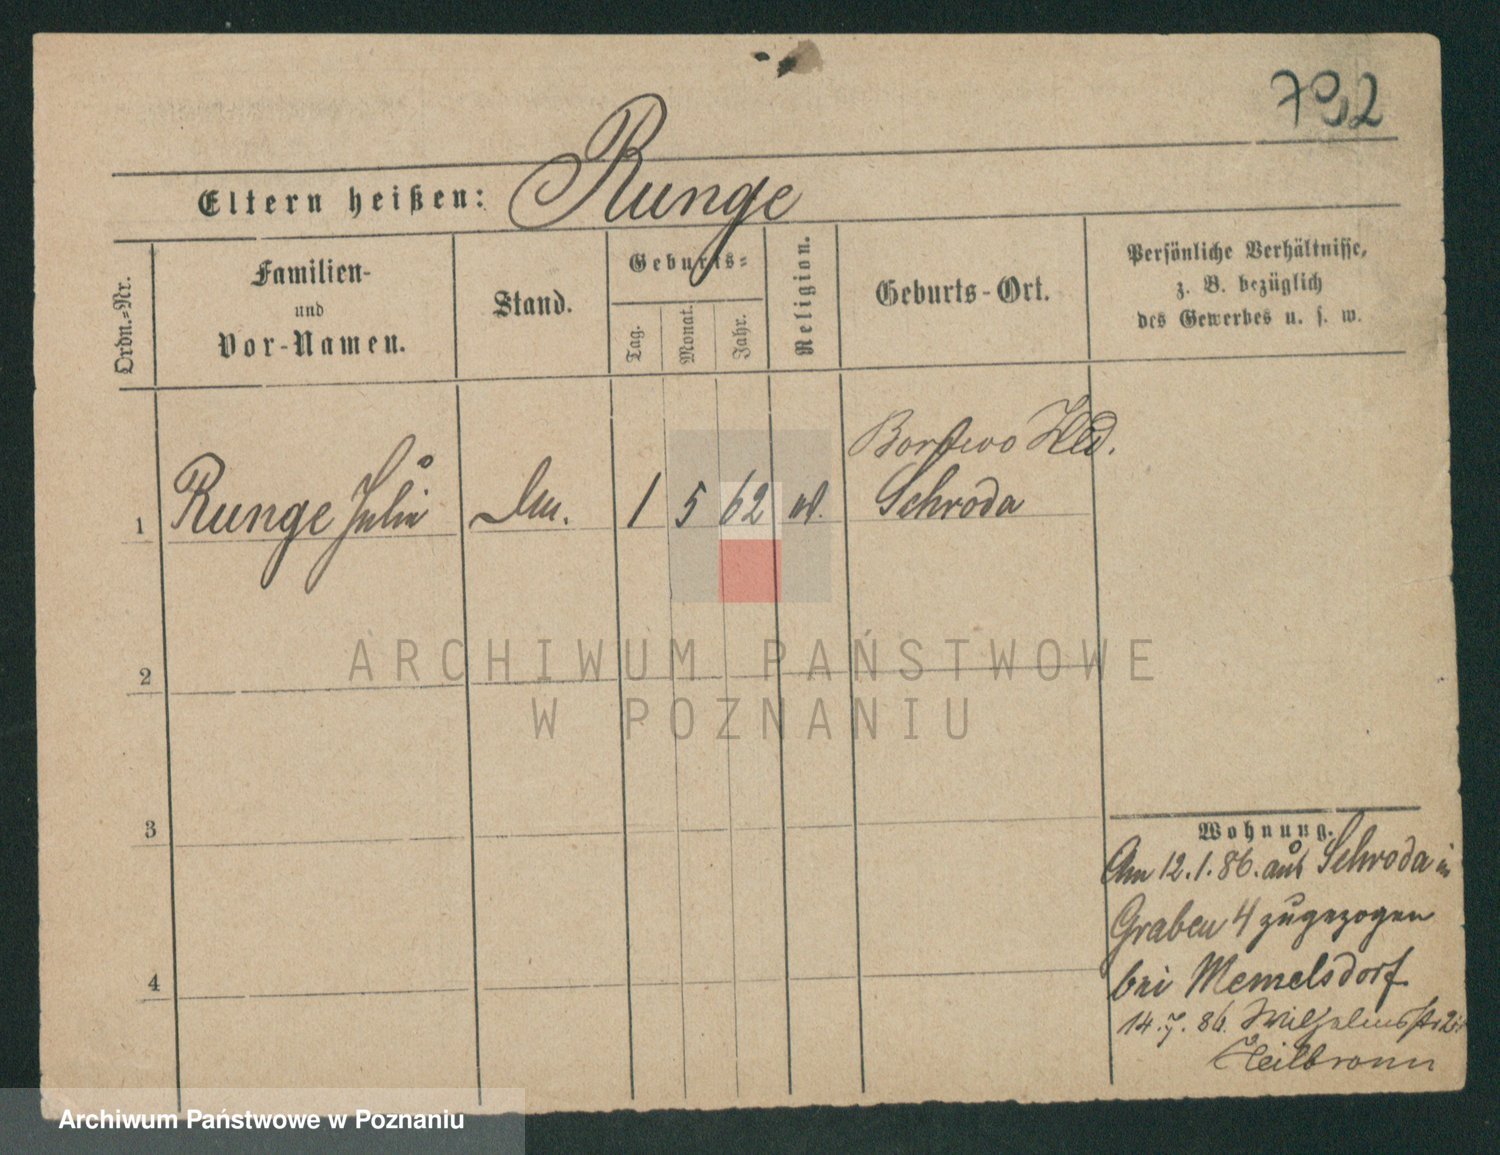 792
Eltern heißen: Runge
Ordn.-Nr.
Familien-
und
Vor-Namen.
Stand.
Geburts-
Tag.
Monat.
Jahr.
Religion.
Geburts-Ort.
Persönliche Verhältnisse,
z. B. bezüglich
des Gewerbes u. s. w.
1 Runge Julie 1 5 62 Schroda
2
3
4
ARCHIWUM PAŃSTWOWE
W POZNANIU
Wohnung.
Am 12.1.86. aus Schroda in
Graben 4 zugezogen
bei Memelsdorf
14.7.86. Wilhelmsstr
Heilbronn
Archiwum Państwowe w Poznaniu